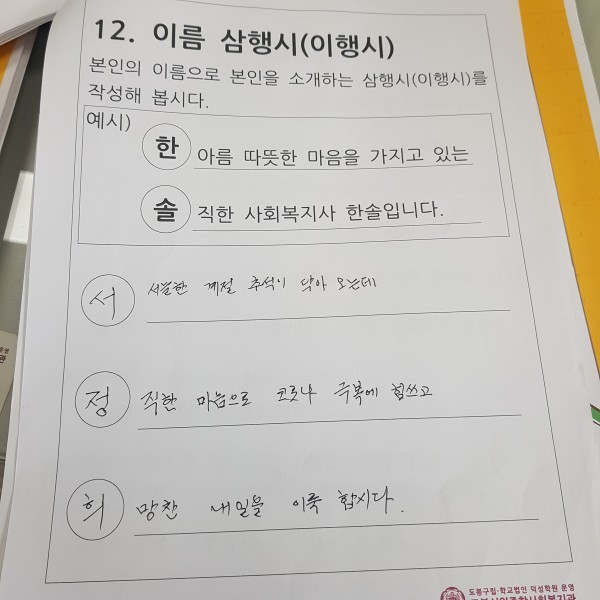 12. 이름 삼행시(이행시)
본인의 이름으로 본인을 소개하는 삼행시(이행시)를
작성해 봅시다.
예시)
한 아름 따뜻한 마음을 가지고 있는
솔 직한 사회복지사 한솔입니다.
서 서늘한 계절 추석이 닥아 오는데
정 직한 마음으로 코로나 극복에 힘쓰고
희 망찬 내일을 이룩 합시다.
도봉구립·학교법인 덕성학원 운영